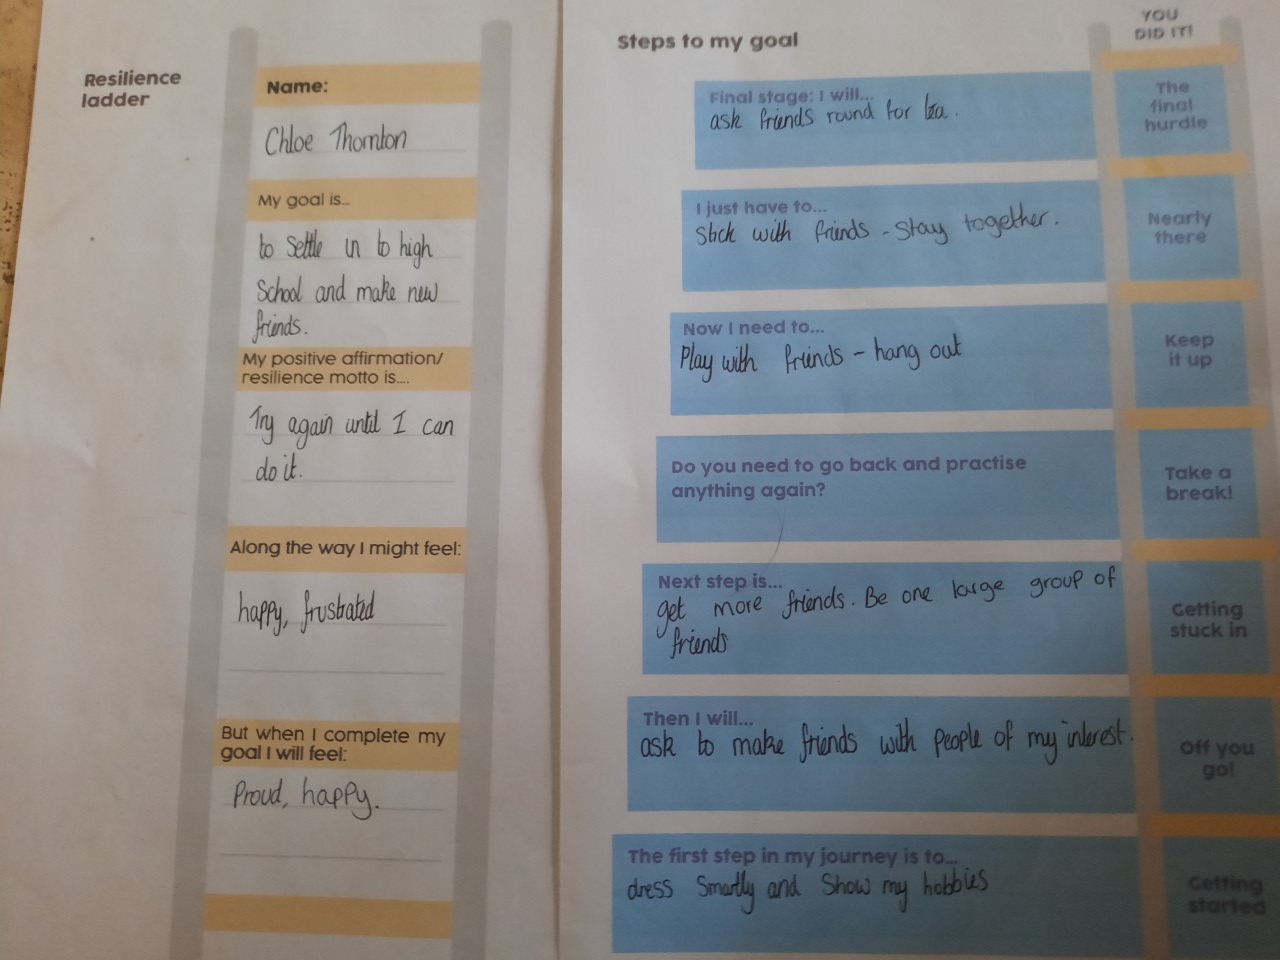 Resilience
ladder
Name:
Chloe Thornton
My goal is...
to settle in to high
School and make new
friends.
My positive affirmation/
resilience motto is....
Try again until I can
do it.
Along the way I might feel:
happy, frustrated
But when I complete my
goal I will feel:
Proud, happy.
Steps to my goal
YOU
DID IT!
Final stage: I will...
ask friends round for tea.
The
final
hurdle
I just have to...
Stick with friends - stay together.
Nearly
there
Now I need to...
Play with friends - hang out
Keep
it up
Do you need to go back and practise
anything again?
Take a
break!
Next step is...
get more friends. Be one large group of
friends
Getting
stuck in
Then I will...
ask to make friends with people of my interest.
Off you
go!
The first step in my journey is to...
dress Smartly and Show my hobbies
Getting
started